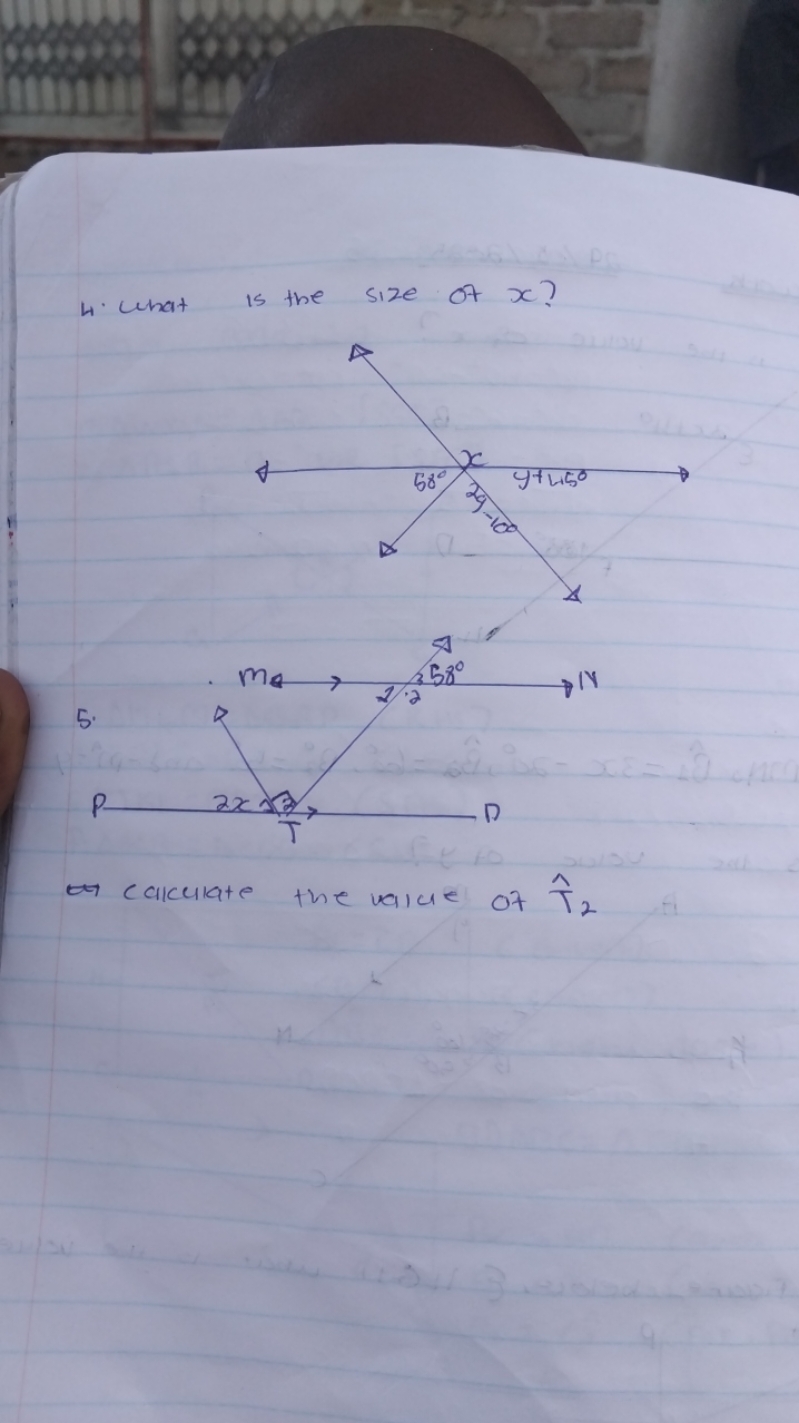 4. What is the size of x?
x
58° y+45°
2y-100
M 3 58° N
1 2
5.
P 2x 1 2 D
T
Calculate the value of T̂2